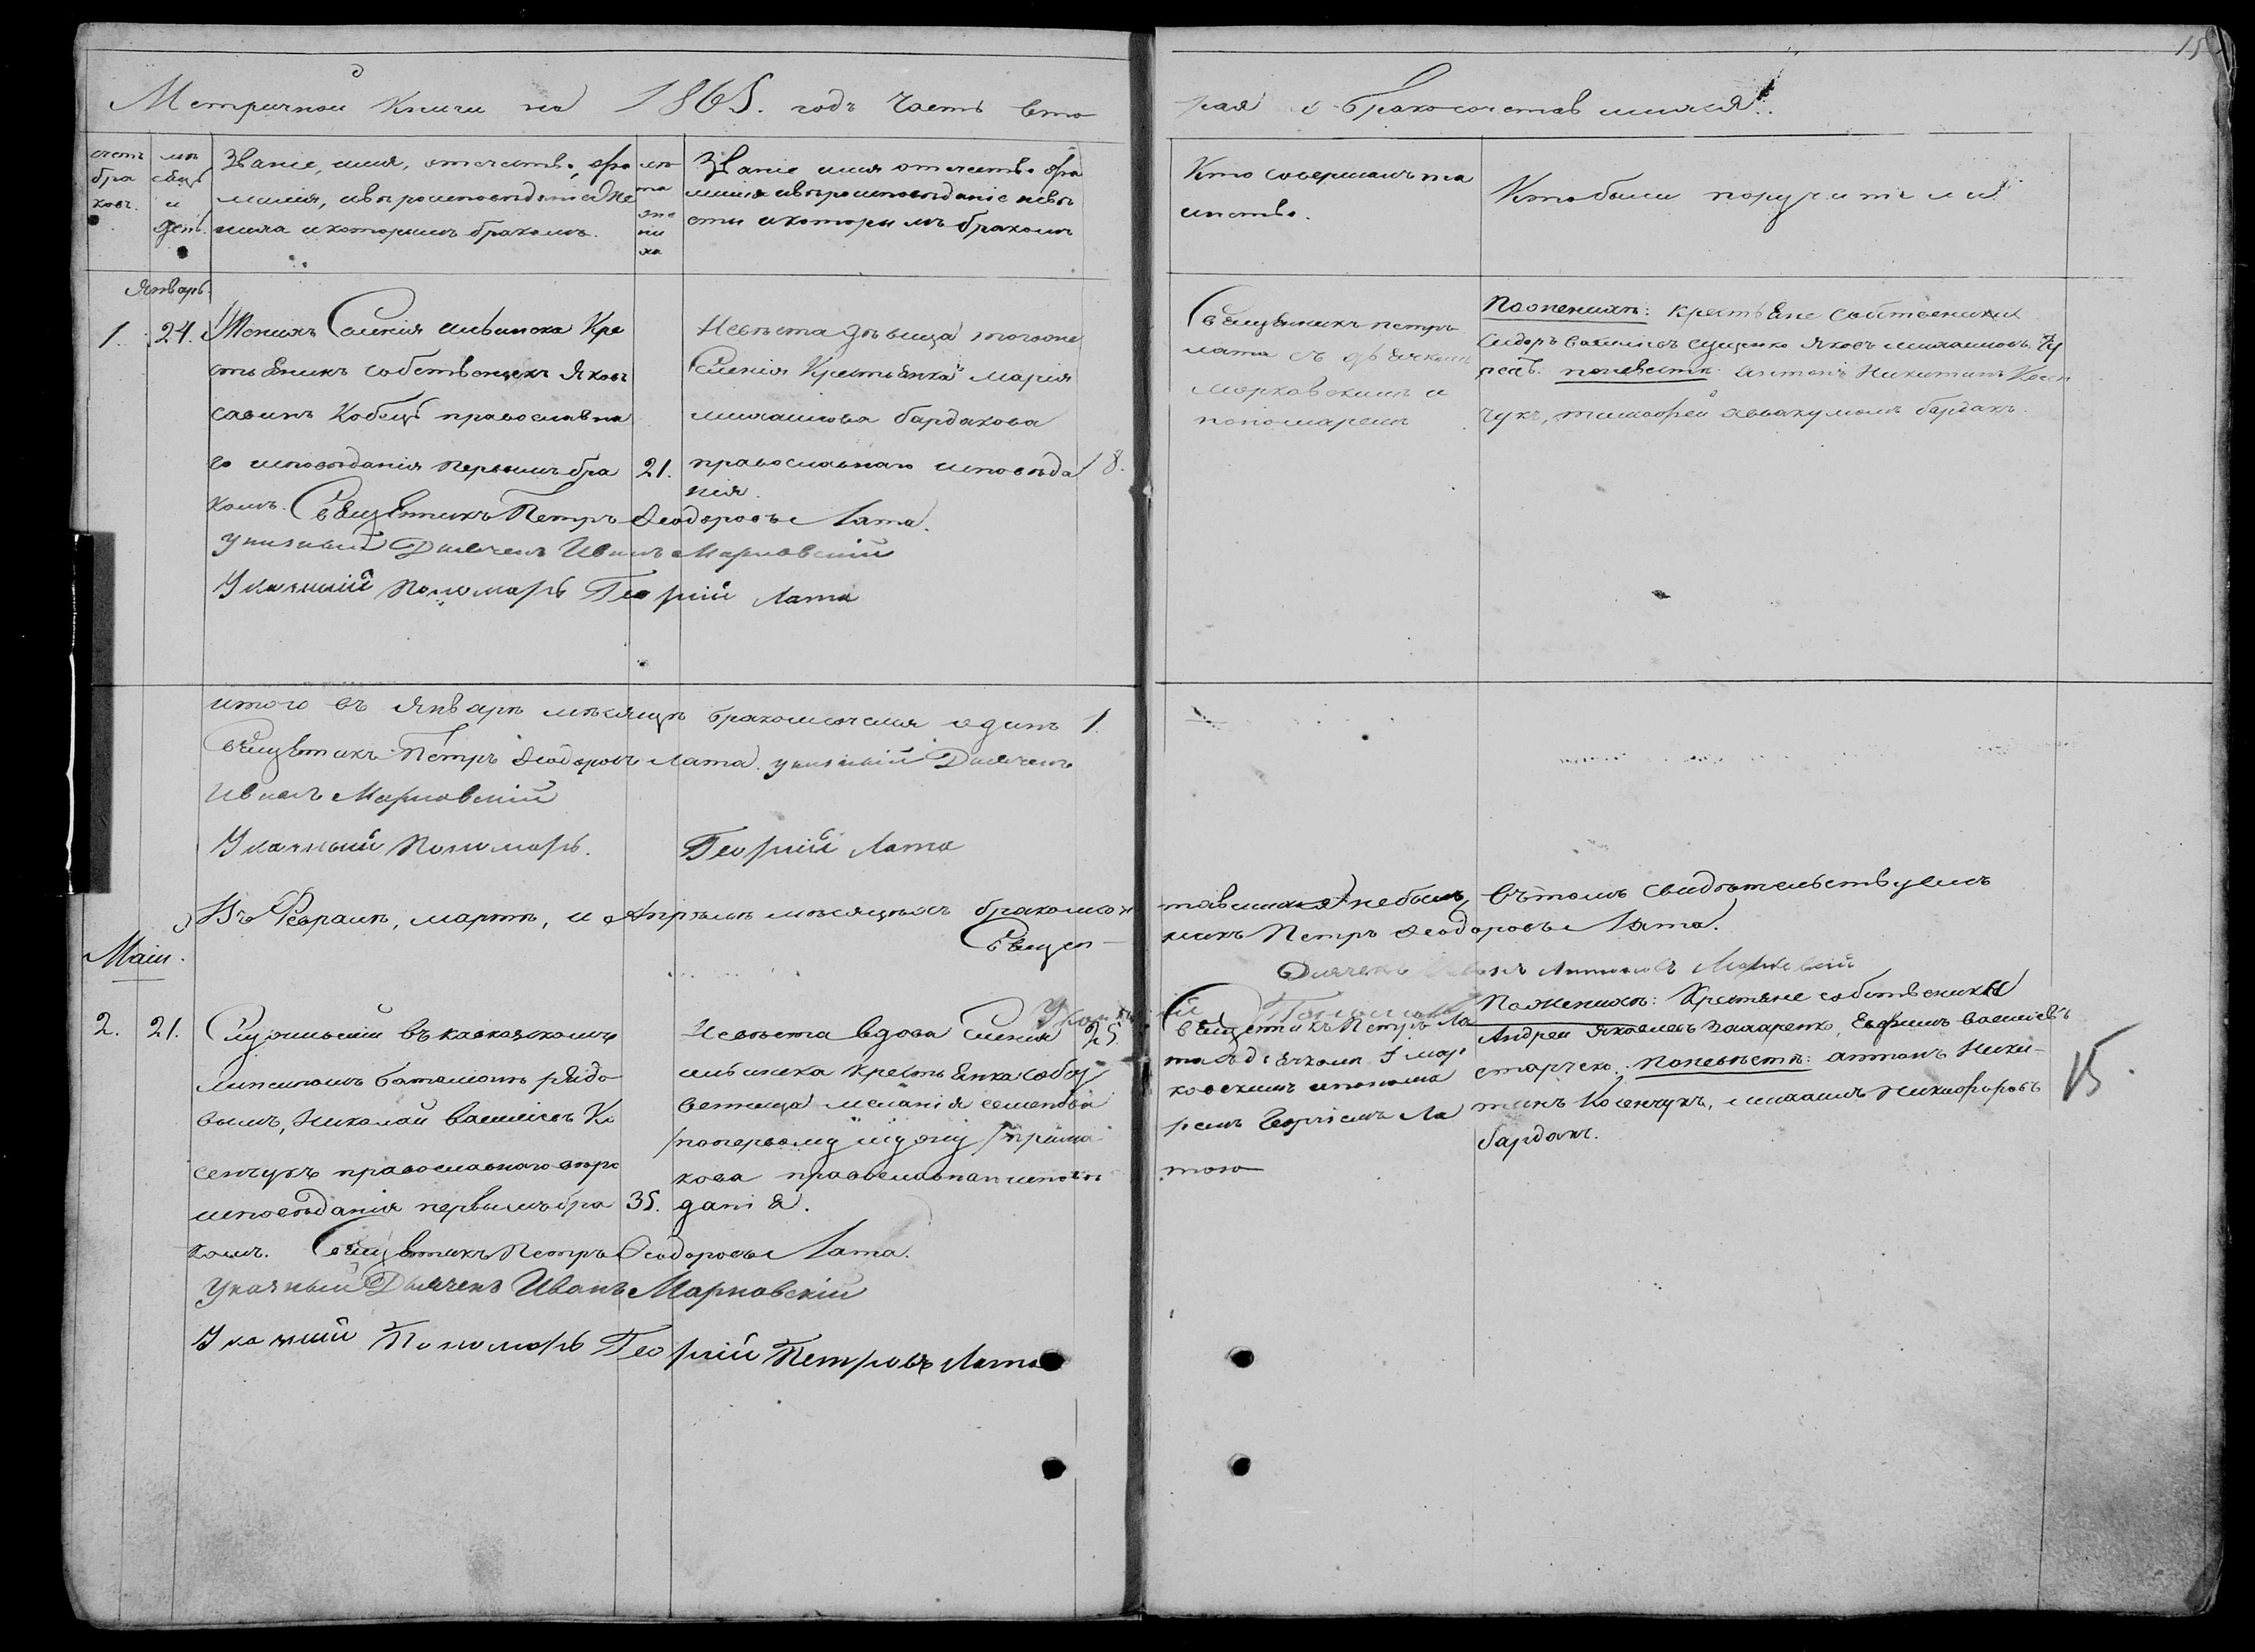 Метричной Книги на 1865. годъ Часть вто
рая о бракосочетавшихся.
счетъ бра ковъ.
мѣ сяцъ и день.
Званіе, имя, отечество, фа
милія, и вѣроисповѣданіе Же
ниха и которымъ бракомъ.
лѣ та же ни ха
Званіе имя отечество фа
милія и вѣроисповѣданіе невѣ
сты и которымъ бракомъ
Кто совершалъ та
инство.
Кто были поручители
Январь
1. 24. Женихъ Селенія Кре
стьянинъ собственникъ Яковъ
Савинъ Кобецъ православна
го исповѣданія первымъ бра 21.
комъ. Священникъ Петръ Ѳеодоровъ Лата.
Указный Дьячекъ Иванъ Марковскій
Указный Пономарь Георгій Лата
Невѣста дѣвица тогоже
Селенія Крестьянка Марія
Михайлова Бардакова
православнаго исповѣда 18.
нія.
Священникъ Петръ
Лата съ дьячкомъ
Марковскимъ и
пономаремъ
По женихѣ: крестьяне собственники
Сидоръ Василіевъ Сущенко Яковъ Михайловъ
по невѣстѣ Антонъ Никитинъ Косен
чукъ, Тимофей Аввакумовъ Бардакъ.
итого въ Январѣ мѣсяцѣ одинъ 1
Священникъ Петръ Ѳеодоровъ Лата. указный Дьячекъ
Иванъ Марковскій
Указный Пономарь. Георгій Лата
Въ Февралѣ, мартѣ, и Апрѣлѣ мѣсяцахъ бракосоче
тавшихся небыло, въ томъ свидѣтельствуемъ
Священ
никъ Петръ Ѳеодоровъ Лата.
Дьячекъ Иванъ Марковскій
Май.
2. 21. Служившій въ кавказскомъ
линейномъ баталіонѣ рядо
вымъ, Николай Василіевъ Ко
сенчукъ православнаго вѣро
исповѣданія первымъ бра 35.
комъ. Священникъ Петръ Ѳеодоровъ Лата.
Указный Дьячекъ Иванъ Марковскій
Указный Пономарь Георгій Петровъ Лата
Невѣста вдова Селенія 25.
крестьянка собст
венница Меланія Семенова
по первому мужу
православнаго исповѣ
данія.
Священникъ Петръ Ла
та съ дьячкомъ І Мар
ковскимъ и понома
ремъ Георгіемъ Ла
тою
По женихѣ: Крестяне собственники
Андрей Яковлевъ Захаренко, Евфимъ Василіевъ
по невѣстѣ: антонъ Ники
тинъ Косенчукъ, михаилъ Никифоровъ
бардакъ.